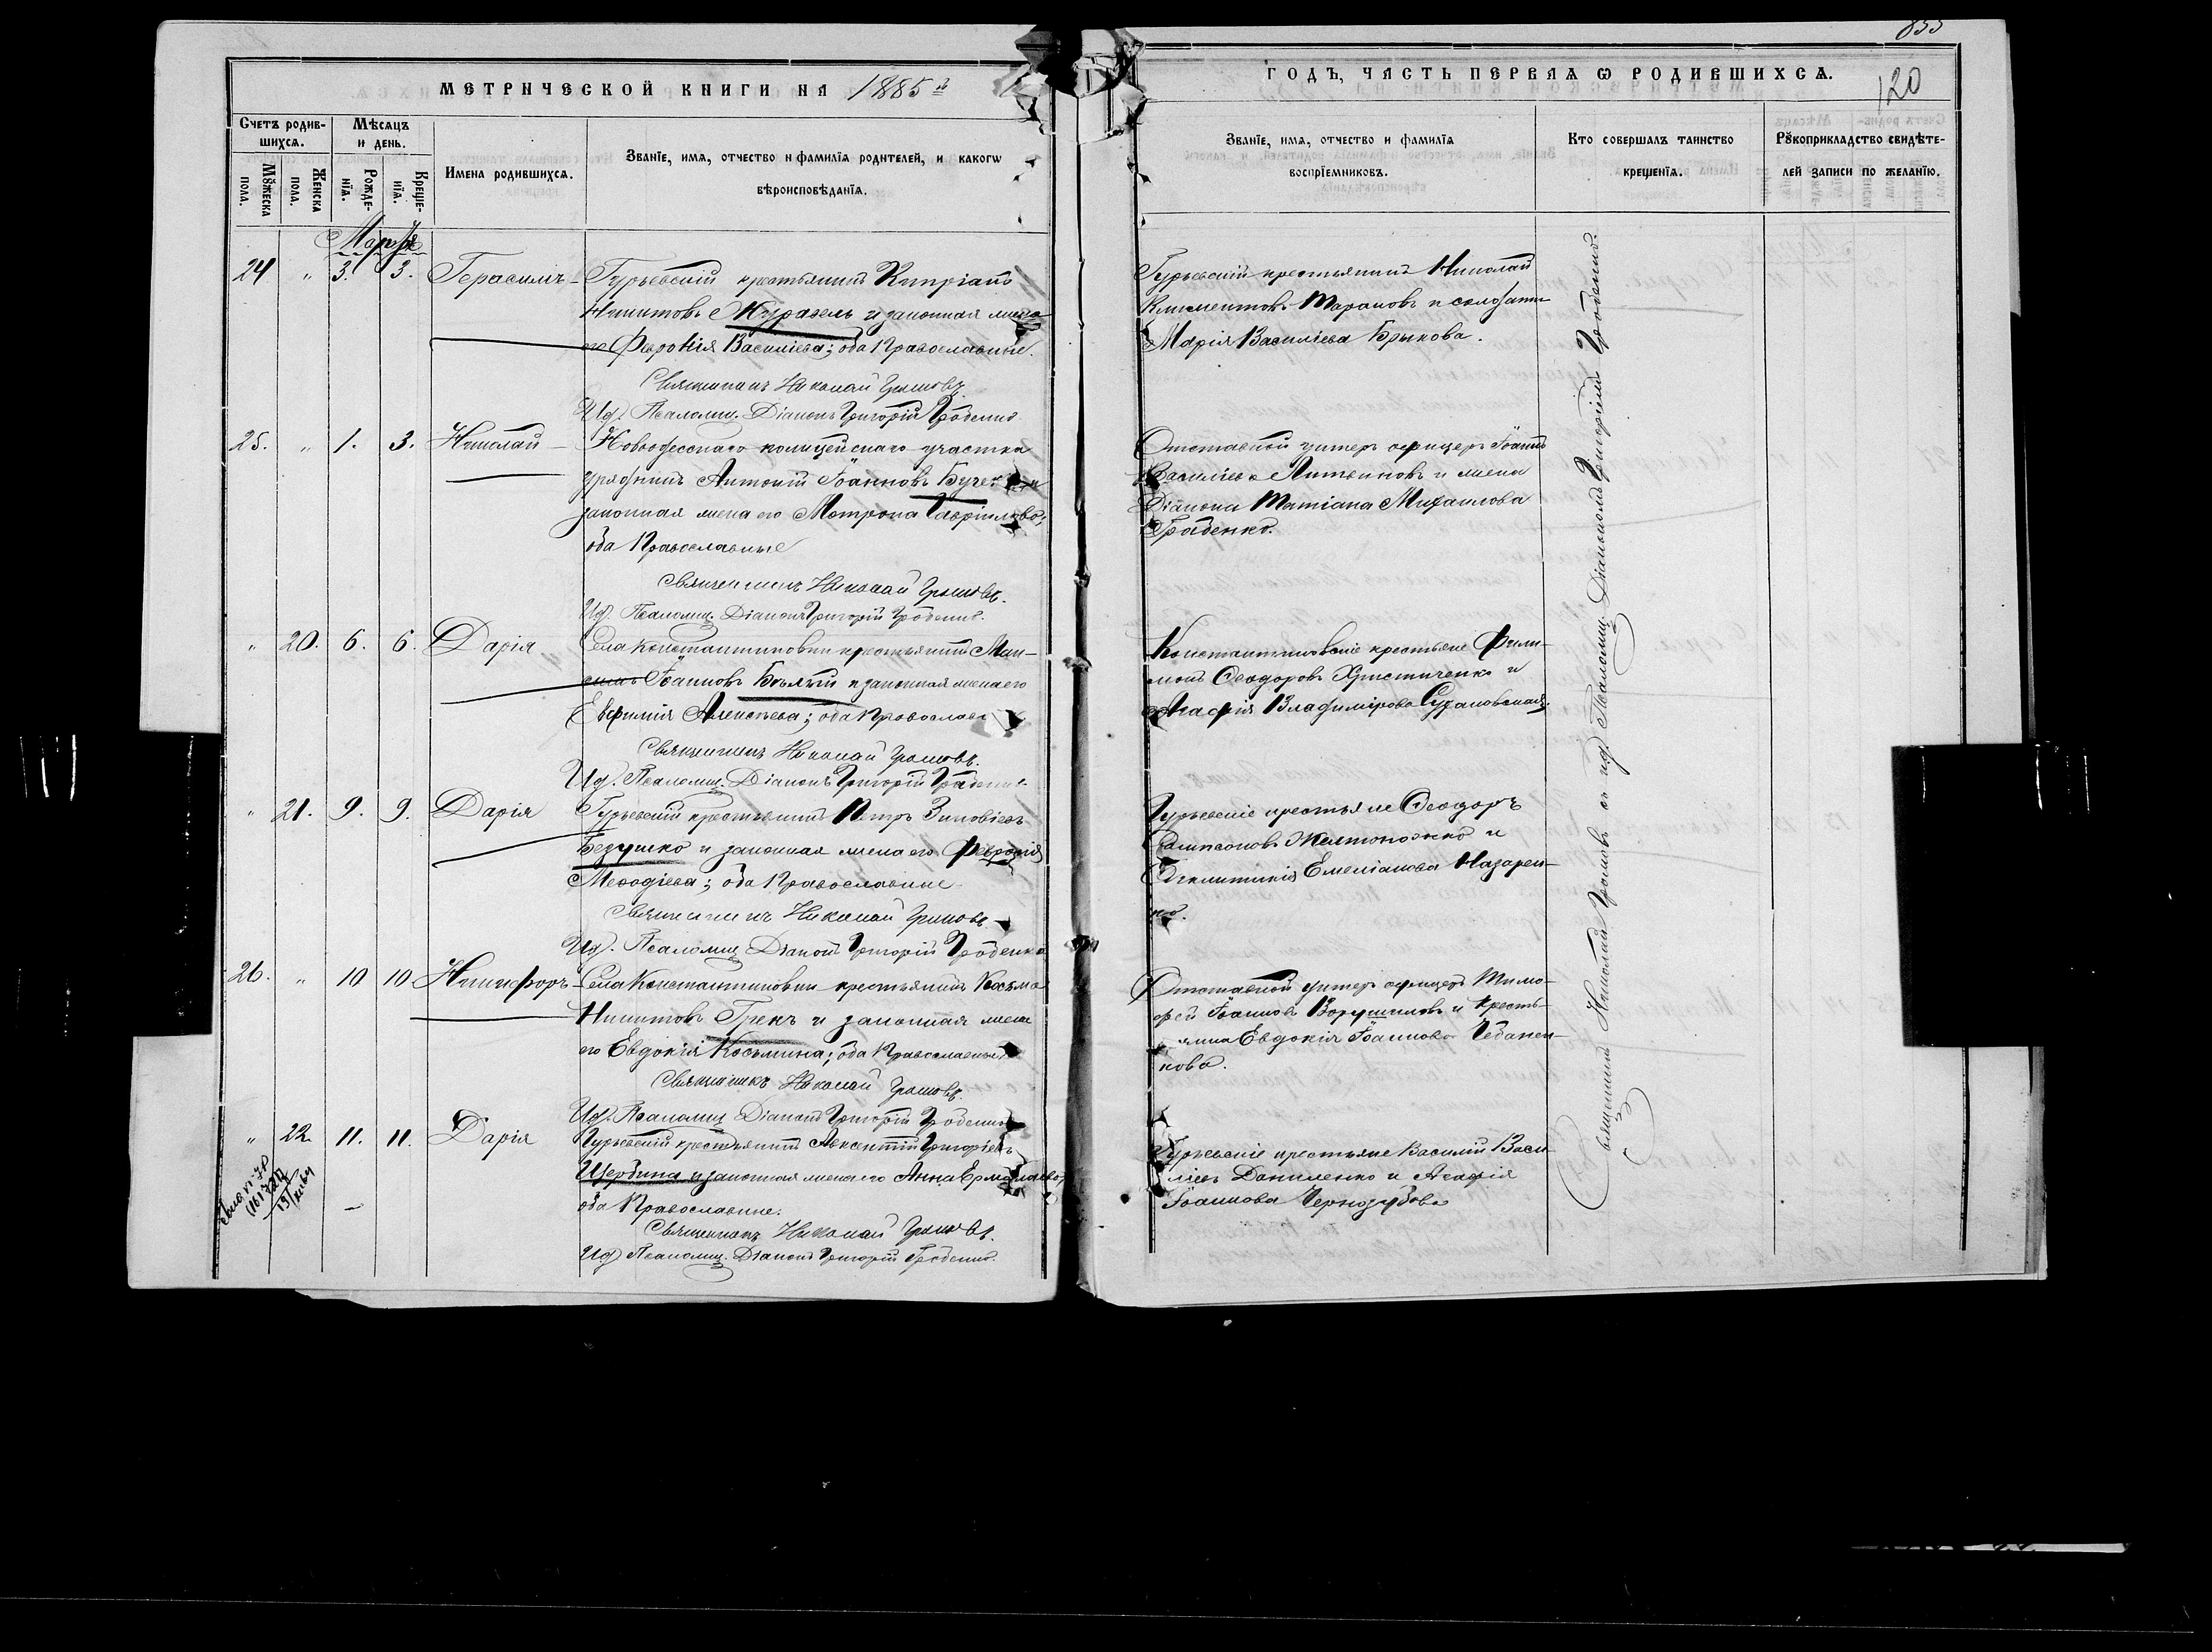 МЕТРИЧЕСКОЙ КНИГИ НА 1885й
Счетъ родив-
шихся.
Мѣсяцъ
и день.
Мꙋжеска
пола.
Женска
пола.
Рожде-
нїа.
Креще-
нїа.
Имена родившихсѧ.
Званїе, имѧ, отчество и фамилїѧ родителей, и какогѡ
вѣроисповѣданїѧ.
Марта
24 " 3. 3. Герасимъ
Гурьевскій крестьянинъ Кипріанъ
Никитовъ Журавель и законная жена
его Февронія Василіева; оба Православные.
Священникъ Николай Громовъ
Ид. Псаломщ. Діаконъ Григорій Гробенко
25. " 1. 3. Николай
Новоодесскаго полицейскаго участка
урядникъ Антоній Іоанновъ и
законная жена его Матрона Гавріилова;
оба Православные
Священникъ Николай Громовъ.
Ид. Псаломщ. Діаконъ Григорій Гробенко.
" 20. 6. 6. Дарія
Села Константиновки крестьянинъ Мак-
симъ Іоанновъ Бѣлый и законная жена его
Евфимія Алексѣева; оба Православ
Священникъ Николай Громовъ.
Ид. Псаломщ. Діаконъ Григорій Гробенко
" 21. 9. 9. Дарія
Гурьевскій крестьянинъ Петръ Зиновіевъ
Безушко и законная жена его Февронія
Меѳодіева; оба Православные
Священникъ Николай Громовъ
Ид. Псаломщ. Діаконъ Григорій Гробенко
26. " 10 10 Никифоръ
Села Константиновки крестьянинъ Косьма
Никитовъ Грекъ и законная жена
его Евдокія Косьмина; оба Православные
Священникъ Николай Громовъ.
Ид. Псаломщ. Діаконъ Григорій Гробенко
" 22. 11. 11. Дарія
Гурьевскій крестьянинъ Авксентій Григоріевъ
Щербина и законная жена его Анна Ермолаева;
оба Православные.
Священникъ Николай Громовъ.
Ид. Псаломщ. Діаконъ Григорій Гробенко.
ГОДЪ, ЧАСТЬ ПЕРВАЯ Ѡ РОДИВШИХСѦ.
120
Званїе, имѧ, отчество и фамилїѧ
воспрїемниковъ.
Кто совершалъ таинство
крещенїѧ.
Рꙋкоприкладство свидѣте-
лей записи по желанїю.
Гурьевскій крестьянинъ Николай
Климентовъ Тарановъ и солдатка
Марія Василіева Брыкова.
Отставной унтеръ офицеръ Іоаннъ
Василіевъ Литвиновъ и жена
Діакона Татіана Михаилова
Гробенко.
Константиновскіе крестьяне Фили-
монъ Ѳеодоровъ Христиченко и
Агафія Владимірова Судановская.
Гурьевскіе крестьяне Ѳеодоръ
Сампсоновъ Желтоножко и
Емеліанова Назарен-
ко.
Отставной унтеръ офицеръ Тимо-
фей Іоанновъ Ворушиловъ и кресть-
янка Евдокія Іоаннова Чебанен-
кова.
Гурьевскіе крестьяне Василій Васи-
ліевъ Даниленко и Агафія
Іоаннова Чернозубова
Священникъ Николай Громовъ съ ид. Псаломщ. Діакономъ Григоріемъ Гробенко.